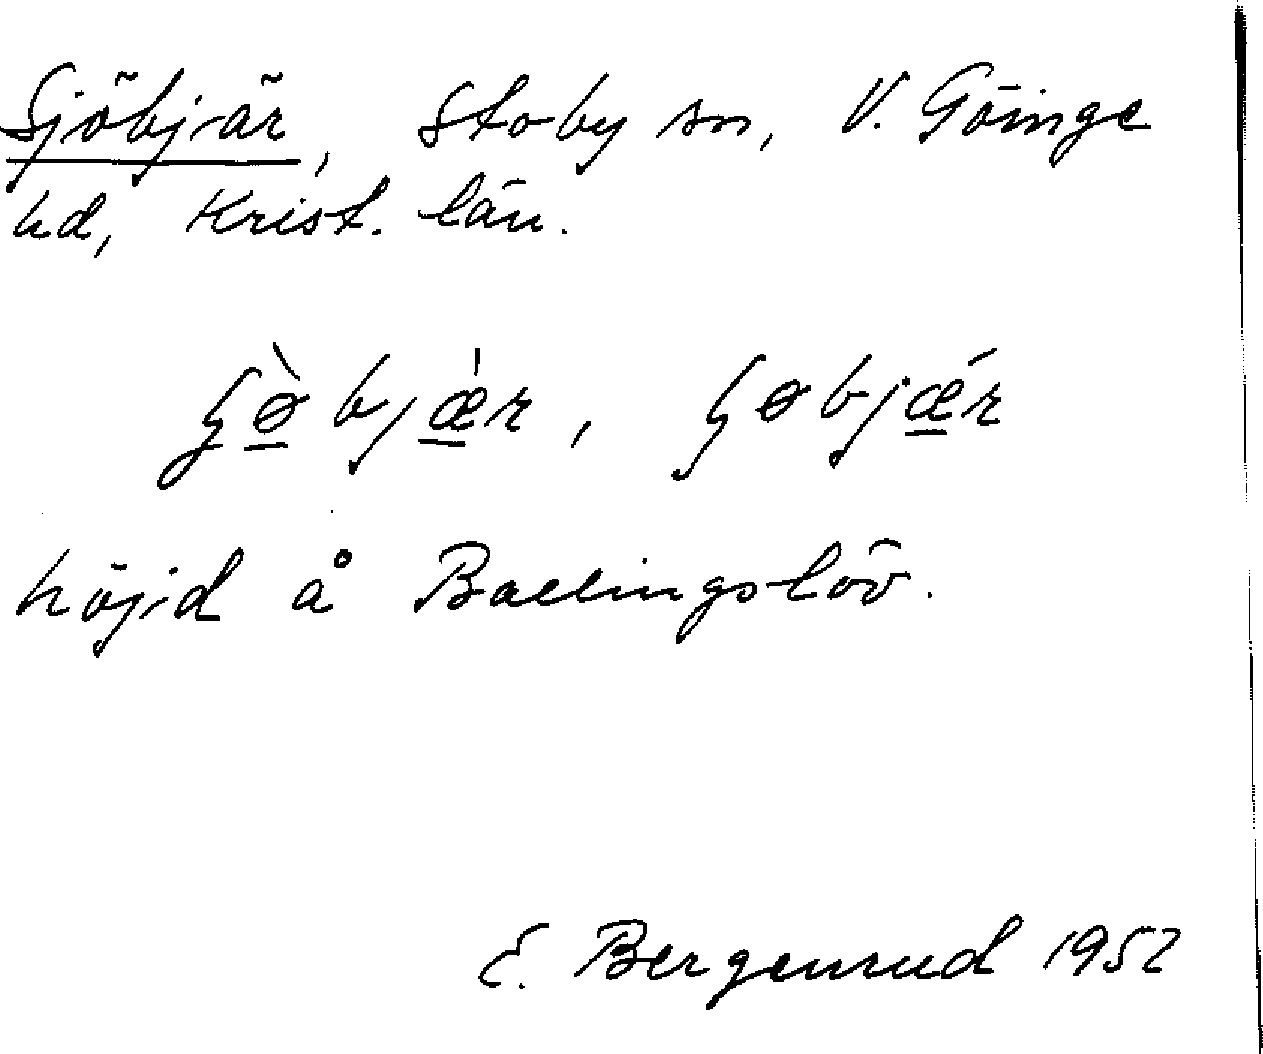 Sjöbjär, Stoby sn, V. Göinge
hd, Krist. län.
höjd å Ballingslöv.
E. Bergenrud 1952